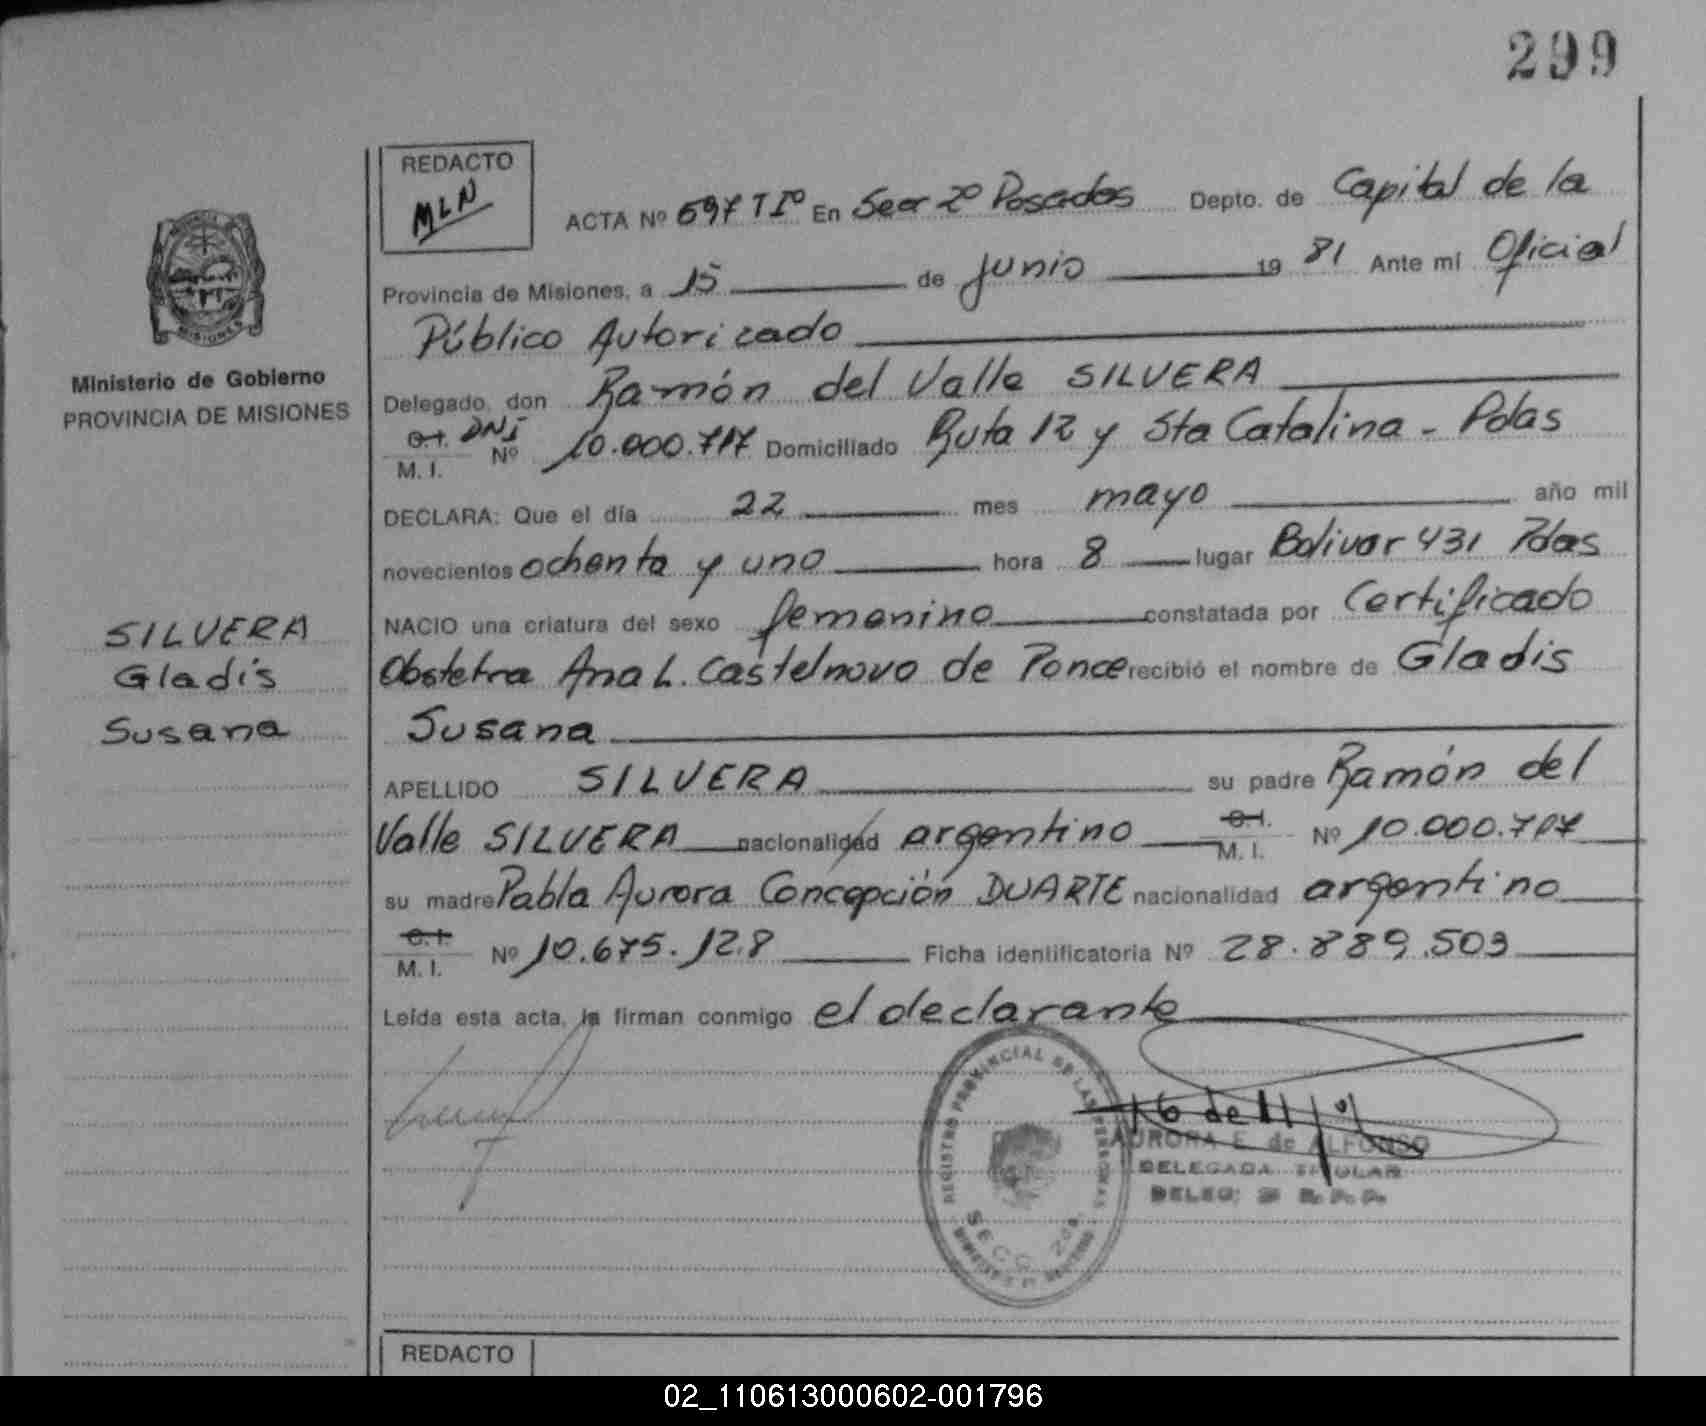 299
REDACTO
MLN
ACTA Nº 697 TIº En Secc 2º Posadas Depto. de Capital de la
Provincia de Misiones, a 15 de junio 19 81 Ante mi Oficial
Público Autorizado
MISIONES
Ministerio de Gobierno
PROVINCIA DE MISIONES
Delegado, don Ramón del Valle SILVERA
C.I. DNI
M. I. Nº 10.000.717 Domiciliado Ruta 12 y Sta Catalina - Pdas
DECLARA: Que el día 22 mes mayo año mil
novecientos ochenta y uno hora 8 lugar Bolivar 431 Pdas
NACIO una criatura del sexo femenino constatada por Certificado
SILVERA
Gladis
Susana
Obstetra Ana L. Castelnovo de Ponce recibió el nombre de Gladis
Susana
APELLIDO SILVERA su padre Ramón del
Valle SILVERA nacionalidad argentino C.I. M. I. Nº 10.000.717
su madre Pabla Aurora Concepción DUARTE nacionalidad argentino
C.I. M. I. Nº 10.675.128 Ficha identificatoria Nº 28.889.503
Leída esta acta, la firman conmigo el declarante
REGISTRO PROVINCIAL DE LAS PERSONAS
SECC. 2da.
16 de 11
AURORA E. de ALFONSO
DELEGADA TITULAR
DELEG. 2 R. P. P.
REDACTO
02_110613000602-001796